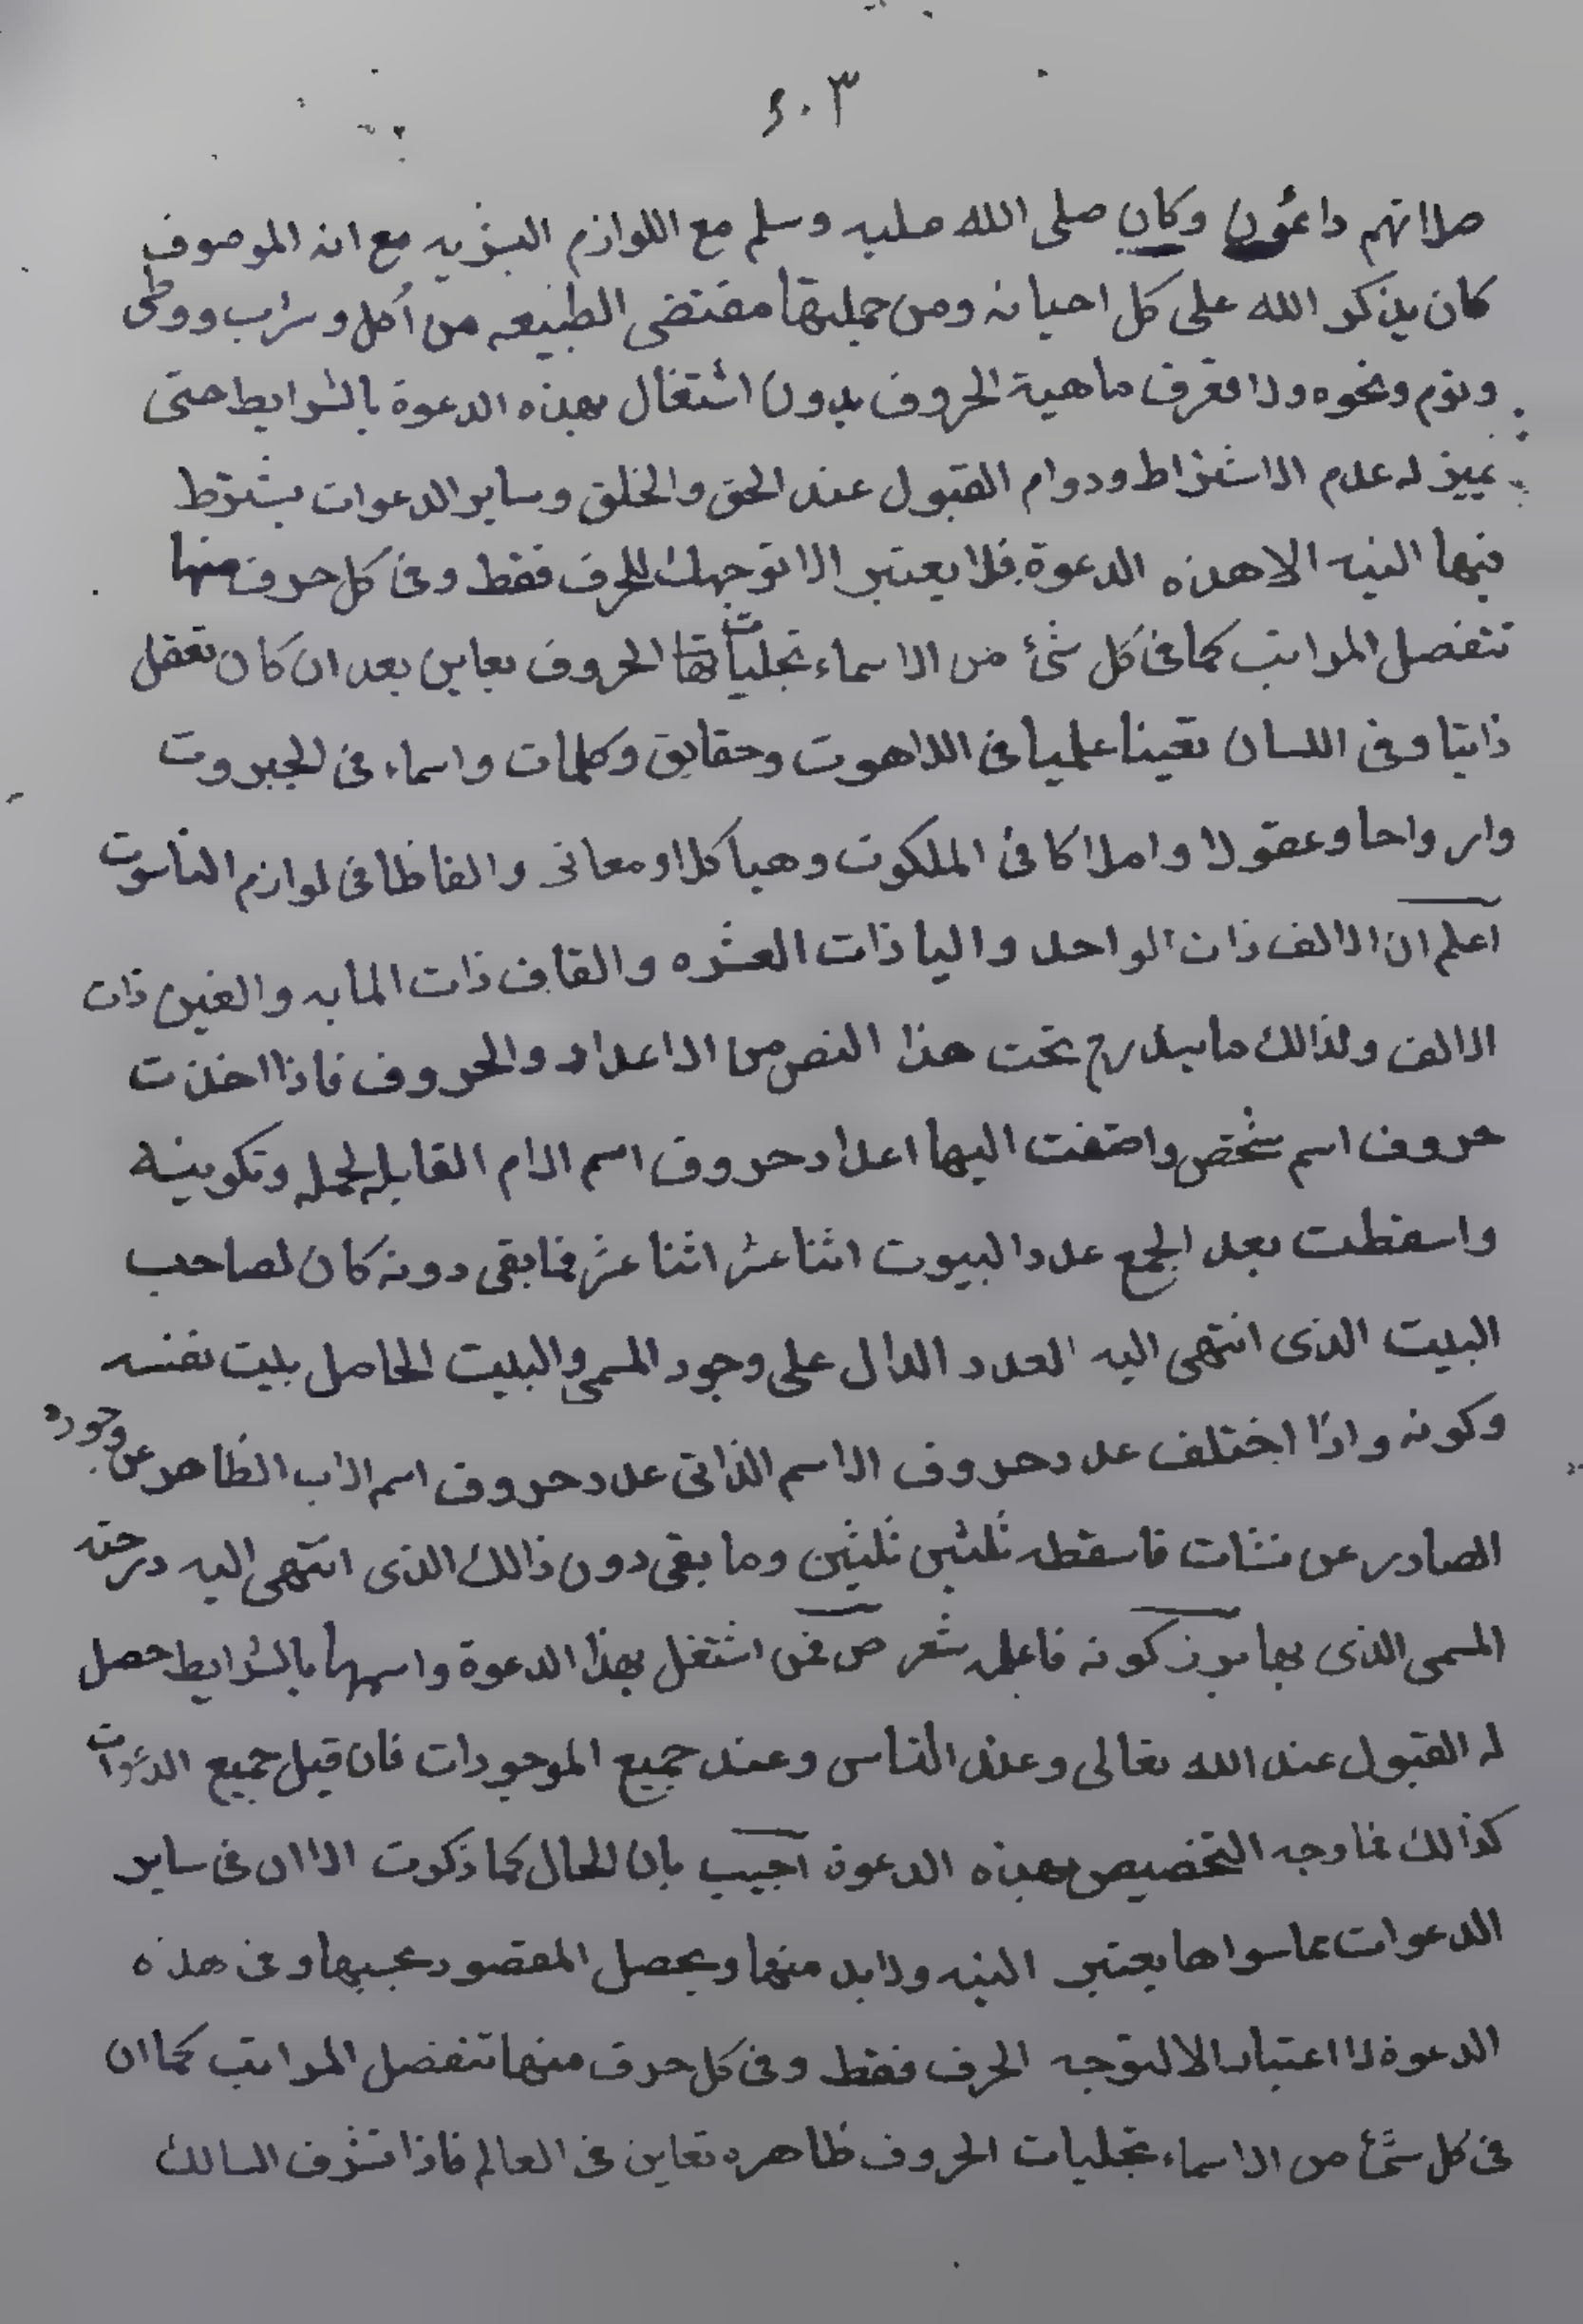 ٤٠٣
صلاتهم دائمون وكان صلى الله عليه وسلم مع اللوازم البشريه مع انه الموصوف
كان يذكر الله على كل احيانه ومن جملتها مقتضى الطبيعه من أكل وشراب ووطى
ونوم ونحوه ولا تعرف ماهية الحروف بدون اشتغال بهذه الدعوة بالشرايط حتى
تميز له عدم الاشتراط ودوام القبول عند الحق والخلق وساير الدعوات يشترط
فيها النيه الا هذه الدعوة فلا يعتبر الا توجهك للحرف فقط وفى كل حرف منها
تتفصل المراتب كما فى كل شئ من الاسماء تجليات الحروف يعاين بعد ان كان تعقل
ذاتيا وفى اللسان تعينا علميا فى اللاهوت وحقايق وكلمات واسماء فى الجبروت
وارواحا وعقولا واملاكا فى الملكوت وهياكلا ومعانى والفاظا فى لوازم الناسوت
اعلم ان الالف ذات الواحد واليا ذات العشره والقاف ذات المايه والغين ذات
الالف ولذالك ما يندرج تحت هذا النص من الاعداد والحروف فاذا اخذت
حروف اسم شخص واضفت اليها اعداد حروف اسم الام القابله لحمله وتكوينه
واسقطت بعد الجمع عدد البيوت اثنا عشر اثنا عشر فما بقى دونه كان لصاحب
البيت الذى انتهى اليه العدد الدال على وجود المسمى والبيت الحاصل بليت نفسه
وكونه واذا اختلف عدد حروف الاسم الذاتى عدد حروف اسم الاب الظاهر عن وجوده
الصادر عن نشات فاسقطه ثلثين ثلثين وما بقى دون ذالك الذى انتهى اليه درجته
المسمى الذى بها برز كونه فاعلم شعر ص فمن اشتغل بهذا الدعوة واسمها بالشرايط حصل
له القبول عند الله تعالى وعند الناس وعند جميع الموجودات فان قيل جميع الدعوات
كذالك فما وجه التخصيص بهذه الدعوة اجيب بان الحال كما ذكرت الا ان فى ساير
الدعوات عما سواها يعتبر النيه ولا بد منها ويحصل المقصود بحسبها وفى هذه
الدعوة لا اعتبار الا لتوجه الحرف فقط وفى كل حرف منها تتفضل المراتب كما ان
فى كل شئ من الاسماء تجليات الحروف ظاهره تعاين فى العالم فاذا تشرف السالك